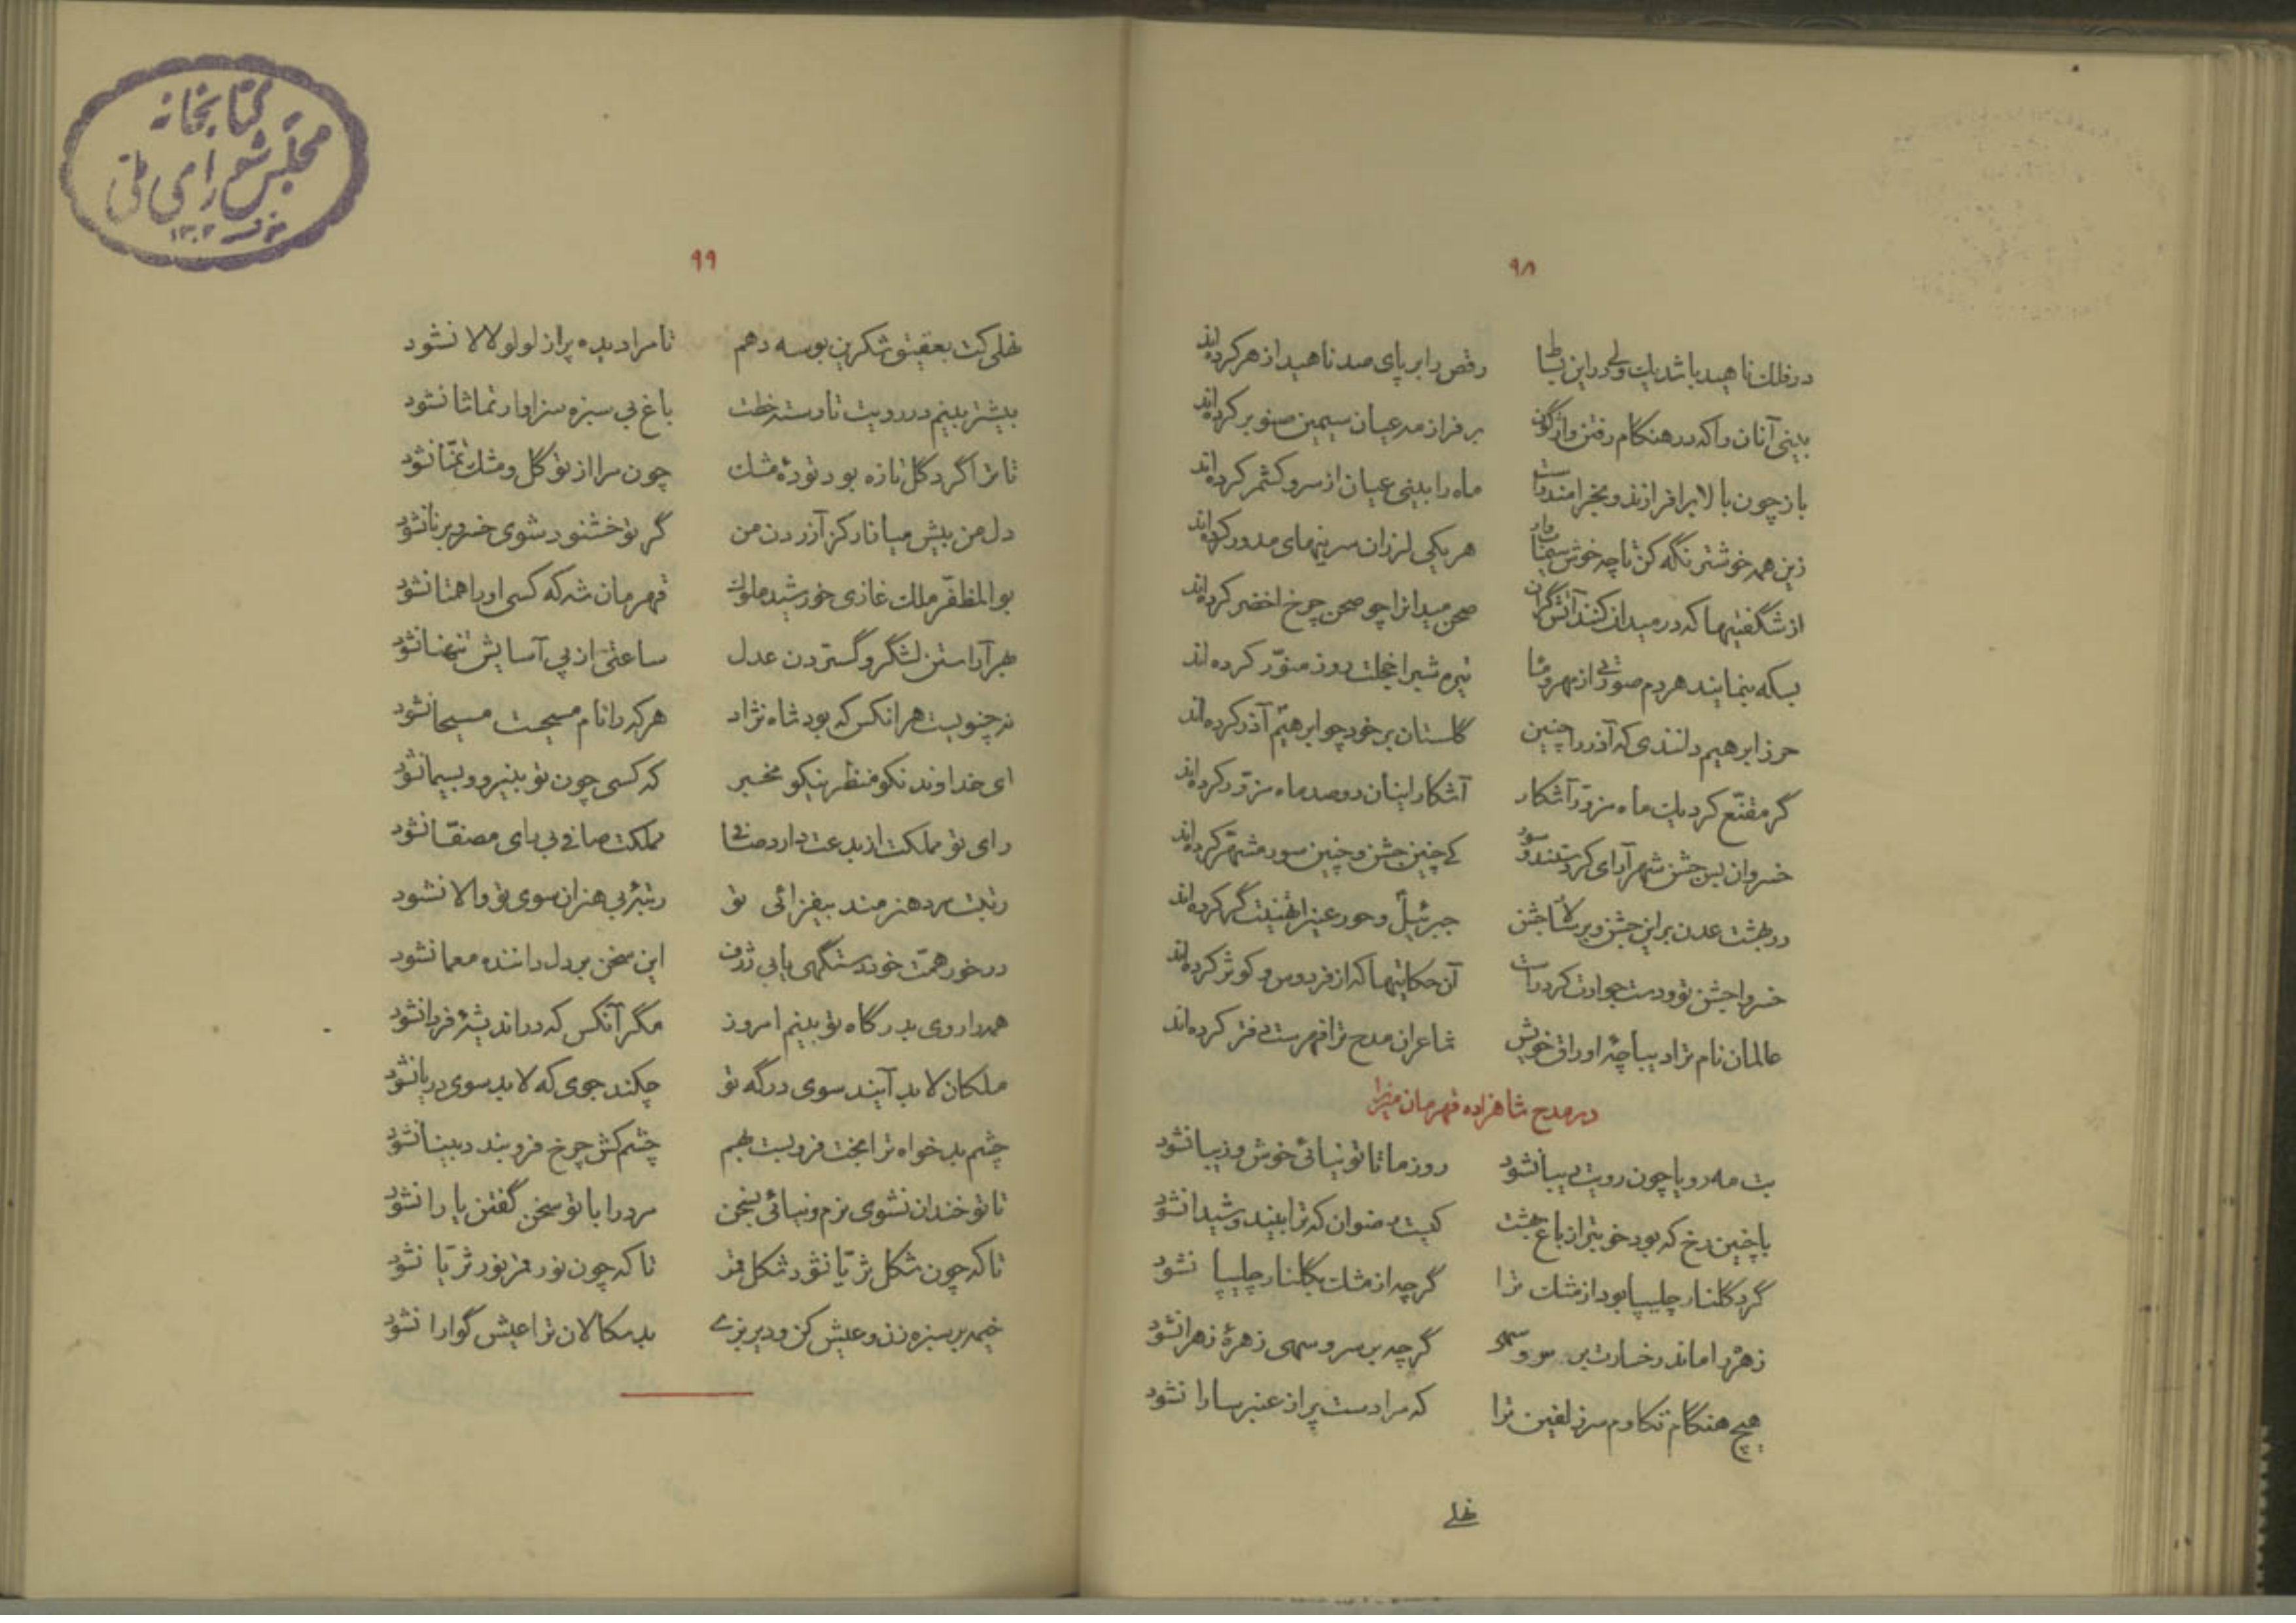 ۹۸
در فلک ناهید باشد یک ولی در این بساط رقص را بر پای صد ناهید ازهر کرده‌اند
بینی آنان را که در هنکام رفتن واژگون بر فراز مه عیان سیمین صنوبر کرده‌اند
باز چون بالا برافرازند و بخرامند راست ماه را بینی عیان از سرو کشمر کرده‌اند
زین همه خوشتر نگه کن تا چه خوش سیماب‌وار هر یکی لرزان سرینهای مدور کرده‌اند
از شگفتیها که در میدان کنند آتش گران صحن میدانرا چو صحن چرخ اخضر کرده‌اند
بسکه بنمایند هر دم صورتی از مهر و ماه تیره شبرا خجلت روز منوّر کرده‌اند
حرز ابرهیم دانندی که آذر را چنین گلستان بر خود چو ابرهیم آذر کرده‌اند
گر مقنّع کرد یک ماه مزوّر آشکار آشکار اینان دو صد ماه مزوّر کرده‌اند
خسروان بس جشن شهرآرای کردستند و سور کی چنین جشن و چنین سور مشهّر کرده‌اند
در بهشت عدن بر این جشن و بر شاجشن جبرئیل و حور عین را تهنیت گر کرده‌اند
خسروا جشن تو و دست جوادت کرد راست آن حکایتها که از فردوس و کوثر کرده‌اند
عالمان نام ترا دیباچهٔ اوراق خویش شاعران مدح ترا فهرست دفتر کرده‌اند
در مدح شاهزاده قهرمان میرزا
بت مه رویا چون رویت دیبا نشود روز ما تا تو نیائی خوش و زیبا نشود
با چنین رخ که بود خوبتر از باغ بهشت کیست رضوان که ترا بیند و شیدا نشود
گرد گلنار چلیپا بود از مشک ترا گرچه از مشک بگلنار چلیپا نشود
زهره را ماند رخسارت بر سرو سهی گرچه بر سرو سهی زهرهٔ زهرا نشود
هیچ هنگام نکاوم سر زلفین ترا که مرا دست پر از عنبر سارا نشود
نهلی
۹۹
نهلی کت بعقیق شکرین بوسه دهم تا مرا دیده پر از لولو لالا نشود
بیشتر بینم در رویت تا رسته خطت باغ بی سبزه سزاوار تماشا نشود
تا ترا گرد گل تازه بود تودهٔ مشک چون مرا از تو گل و مشک تمنّا نشود
دل من بیش میازار کز آزردن من گر تو خشنود شوی خسرو برنا نشود
بوالمظفّر ملک غازی خورشید ملوک قهرمان شه که کسی او را همتا نشود
بهر آراستن لشگر و گستردن عدل ساعتی از پی آسایش تنها نشود
نه چنویست هر انکس که بود شاه نژاد هر که را نام مسیحست مسیحا نشود
ای خداوند نکو منظر نیکو مخبر که کسی چون تو بنیرو و بسیما نشود
رای تو مملکت از بدعت دارد صافی مملکت صافی بی رای مصفّا نشود
رتبت مرد هنرمند بیفزائی تو رتبهٔ بی هنران سوی تو والا نشود
در خور همّت خود دستگهی یابی ژرف این سخن بر دل داننده معما نشود
همه را روی بدرگاه تو بینم امروز مگر آنکس که در اندیشهٔ فردا نشود
ملکان لابد آیند سوی درگه تو چکند جوی که لابد سوی دریا نشود
چشم بدخواه ترا بخت فروبست بهم چشم کش چرخ فروبندد بینا نشود
تا تو خندان نشوی نرم و نیائی بسخن مرد را با تو سخن گفتن یارا نشود
تا که چون شکل ثریّا نشود شکل قمر تا که چون نور قمر نور ثریّا نشود
خیمه بر سبزه زن و عیش کن و دیر بزی بدسکالان ترا عیش گوارا نشود
کتابخانه
مجلس شورای ملی
۱۳۰۲